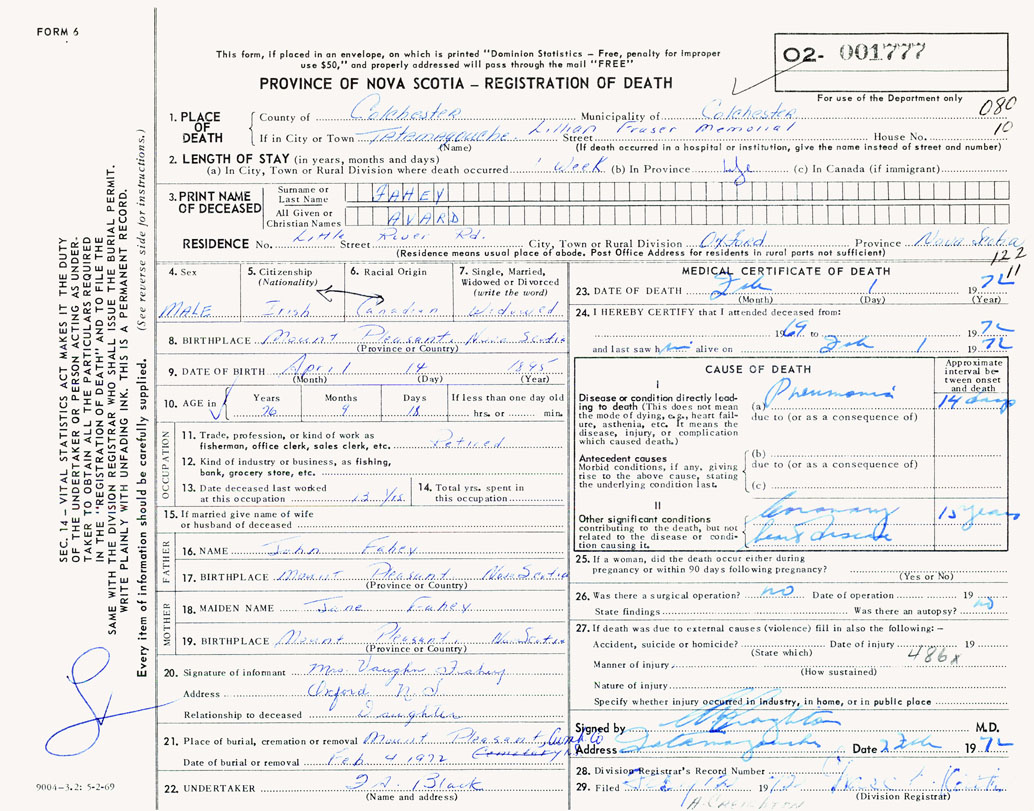 FORM 6
This form, if placed in an envelope, on which is printed "Dominion Statistics – Free, penalty for improper
use $50," and properly addressed will pass through the mail "FREE"
PROVINCE OF NOVA SCOTIA – REGISTRATION OF DEATH
O2- 001777
For use of the Department only
080
10
1. PLACE OF DEATH County of Colchester Municipality of Colchester
If in City or Town Tatamagouche Street Lillian Fraser Memorial House No.
(Name) (If death occurred in a hospital or institution, give the name instead of street and number)
2. LENGTH OF STAY (in years, months and days)
(a) In City, Town or Rural Division where death occurred 1 Week (b) In Province Life (c) In Canada (if immigrant)
3. PRINT NAME OF DECEASED
Surname or Last Name FAHEY
All Given or Christian Names AVARD
RESIDENCE No. Little River Rd. Street City, Town or Rural Division Oxford Province Nova Scotia
(Residence means usual place of abode. Post Office Address for residents in rural parts not sufficient)
122
11
4. Sex MALE
5. Citizenship (Nationality) Irish
6. Racial Origin Canadian
7. Single, Married, Widowed or Divorced (write the word) Widowed
8. BIRTHPLACE Mount Pleasant, Nova Scotia
(Province or Country)
9. DATE OF BIRTH April 14 1895
(Month) (Day) (Year)
10. AGE in Years Months Days If less than one day old
76 9 18 hrs. or min.
OCCUPATION
11. Trade, profession, or kind of work as
fisherman, office clerk, sales clerk, etc. Retired
12. Kind of industry or business, as fishing,
bank, grocery store, etc.
13. Date deceased last worked
at this occupation 13 Yrs
14. Total yrs. spent in
this occupation
15. If married give name of wife
or husband of deceased
FATHER
16. NAME John Fahey
17. BIRTHPLACE Mount Pleasant Nova Scotia
(Province or Country)
MOTHER
18. MAIDEN NAME Jane Fahey
19. BIRTHPLACE Mount Pleasant, Nova Scotia
(Province or Country)
20. Signature of informant Mrs. Vaughn Fahey
Address Oxford N.S
Relationship to deceased Daughter
21. Place of burial, cremation or removal Mount Pleasant, Cumb Co
Cemetery
Date of burial or removal Feb 4 1972
22. UNDERTAKER Black
(Name and address)
MEDICAL CERTIFICATE OF DEATH
23. DATE OF DEATH Feb 1 1972
(Month) (Day) (Year)
24. I HEREBY CERTIFY that I attended deceased from:
1969 to 1972
and last saw him alive on Feb 1 1972
CAUSE OF DEATH
Approximate interval between onset and death
I
Disease or condition directly leading to death (This does not mean the mode of dying, e.g., heart failure, asthenia, etc. It means the disease, injury, or complication which caused death.)
(a) Pneumonia 14 days
due to (or as a consequence of)
Antecedent causes
Morbid conditions, if any, giving rise to the above cause, stating the underlying condition last.
(b)
due to (or as a consequence of)
(c)
II
Other significant conditions
contributing to the death, but not related to the disease or condition causing it.
Coronary
heart disease 15 years
25. If a woman, did the death occur either during
pregnancy or within 90 days following pregnancy?
(Yes or No)
26. Was there a surgical operation? no Date of operation 19
State findings Was there an autopsy? no
27. If death was due to external causes (violence) fill in also the following: –
Accident, suicide or homicide? Date of injury 19
(State which) 486x
Manner of injury
(How sustained)
Nature of injury
Specify whether injury occurred in industry, in home, or in public place
Signed by M.D.
Address Tatamagouche Date 2 Feb 1972
28. Division Registrar's Record Number
29. Filed 1972
(Division Registrar)
A. Creighton
SEC. 14 – VITAL STATISTICS ACT MAKES IT THE DUTY
OF THE UNDERTAKER OR PERSON ACTING AS UNDER-
TAKER TO OBTAIN ALL THE PARTICULARS REQUIRED
IN THE "REGISTRATION OF DEATH" AND TO FILE THE
SAME WITH THE DIVISION REGISTRAR WHO SHALL ISSUE THE BURIAL PERMIT.
WRITE PLAINLY WITH UNFADING INK. THIS IS A PERMANENT RECORD.
Every item of information should be carefully supplied. (See reverse side for instructions.)
9004–3.2: 5-2-69